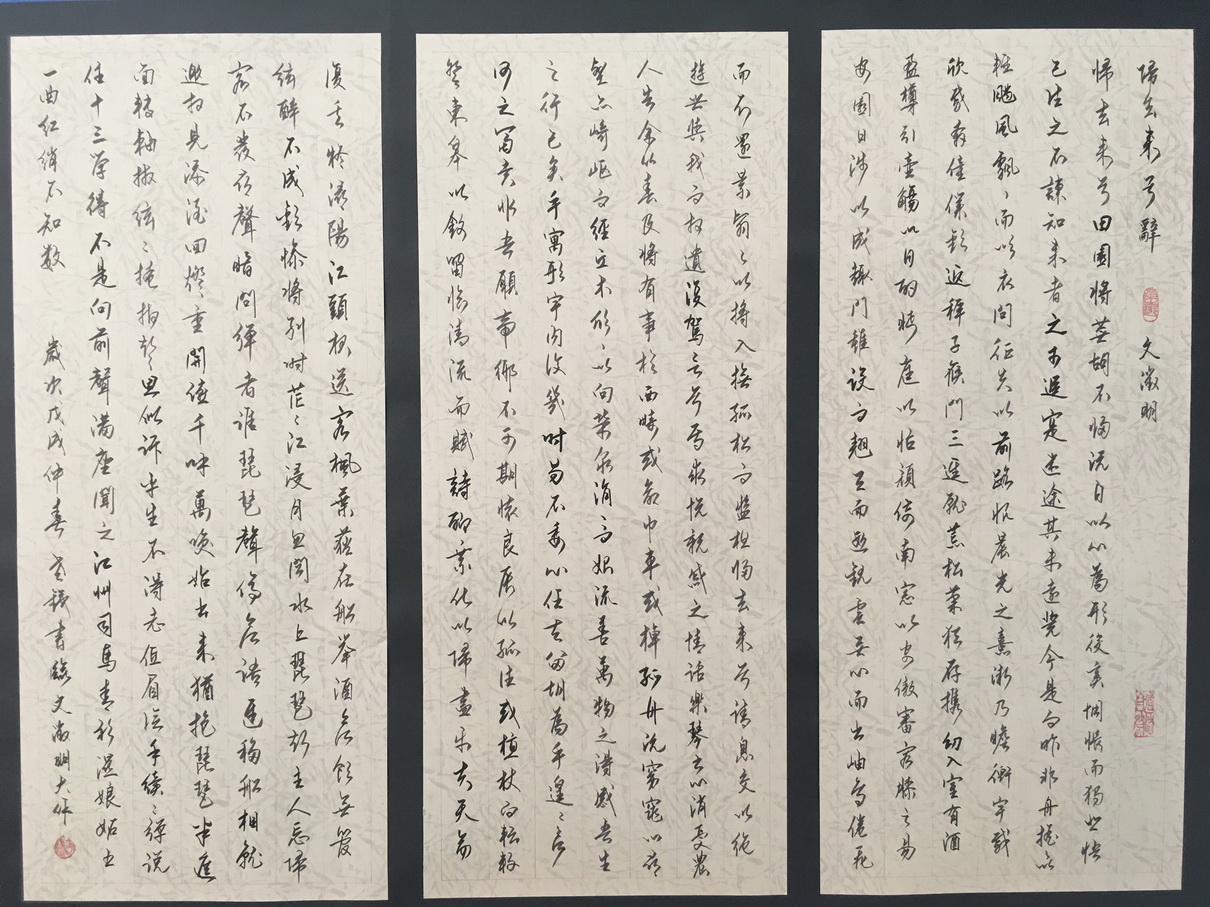 歸去来兮辭 文徵明
歸去来兮田園將蕪胡不歸既自以心為形役奚惆悵而獨悲悟
已往之不諫知来者之可追寔迷途其未遠覺今是而昨非舟搖以
輕颺風飄〻而吹衣問征夫以前路恨晨光之熹微乃瞻衡宇載
欣載奔僮僕歡迎稚子候門三逕就荒松菊猶存攜幼入室有酒
盈樽引壺觴以自酌眄庭以怡顏倚南窓以寄傲審容膝之易
安園日涉以成趣門雖設而翹首而遐觀雲無心而出岫鳥倦飛
而知還景翳〻以將入撫孤松而盤桓歸去来兮請息交以絕
遊世與我而相遺復駕言兮焉求悅親戚之情話樂琴書以消憂農
人告余以春及將有事於西疇或命巾車或棹孤舟既窈窕以尋
壑亦崎嶇而經丘木欣〻以向榮泉涓而始流善萬物之得感吾生
之行已矣乎寓形宇內復幾时曷不委心任去留胡為乎遑〻兮
何之富貴非吾願帝鄉不可期懷良辰以孤往或植杖而耘耔
登東皋以舒嘯臨清流而賦詩聊乘化以歸盡樂夫天命
復奚疑潯陽江頭秋送客楓葉荻在船舉酒欲飲無管
絃醉不成歡慘將別时茫〻江浸月忽聞水上琵琶聲主人忘歸
客不發尋聲暗問彈者誰琵琶聲停欲語遲移船相就
邀相見添酒回燈重開宴千呼萬喚始出来猶抱琵琶半遮
面轉軸撥絃〻掩抑聲〻思似訴平生不得志低眉信手續〻彈說
住十三学得不是向前聲滿座聞之江州司馬青衫濕娘妬五
一曲紅綃不知數 歲次戊戌仲春 書錄文徵明大作